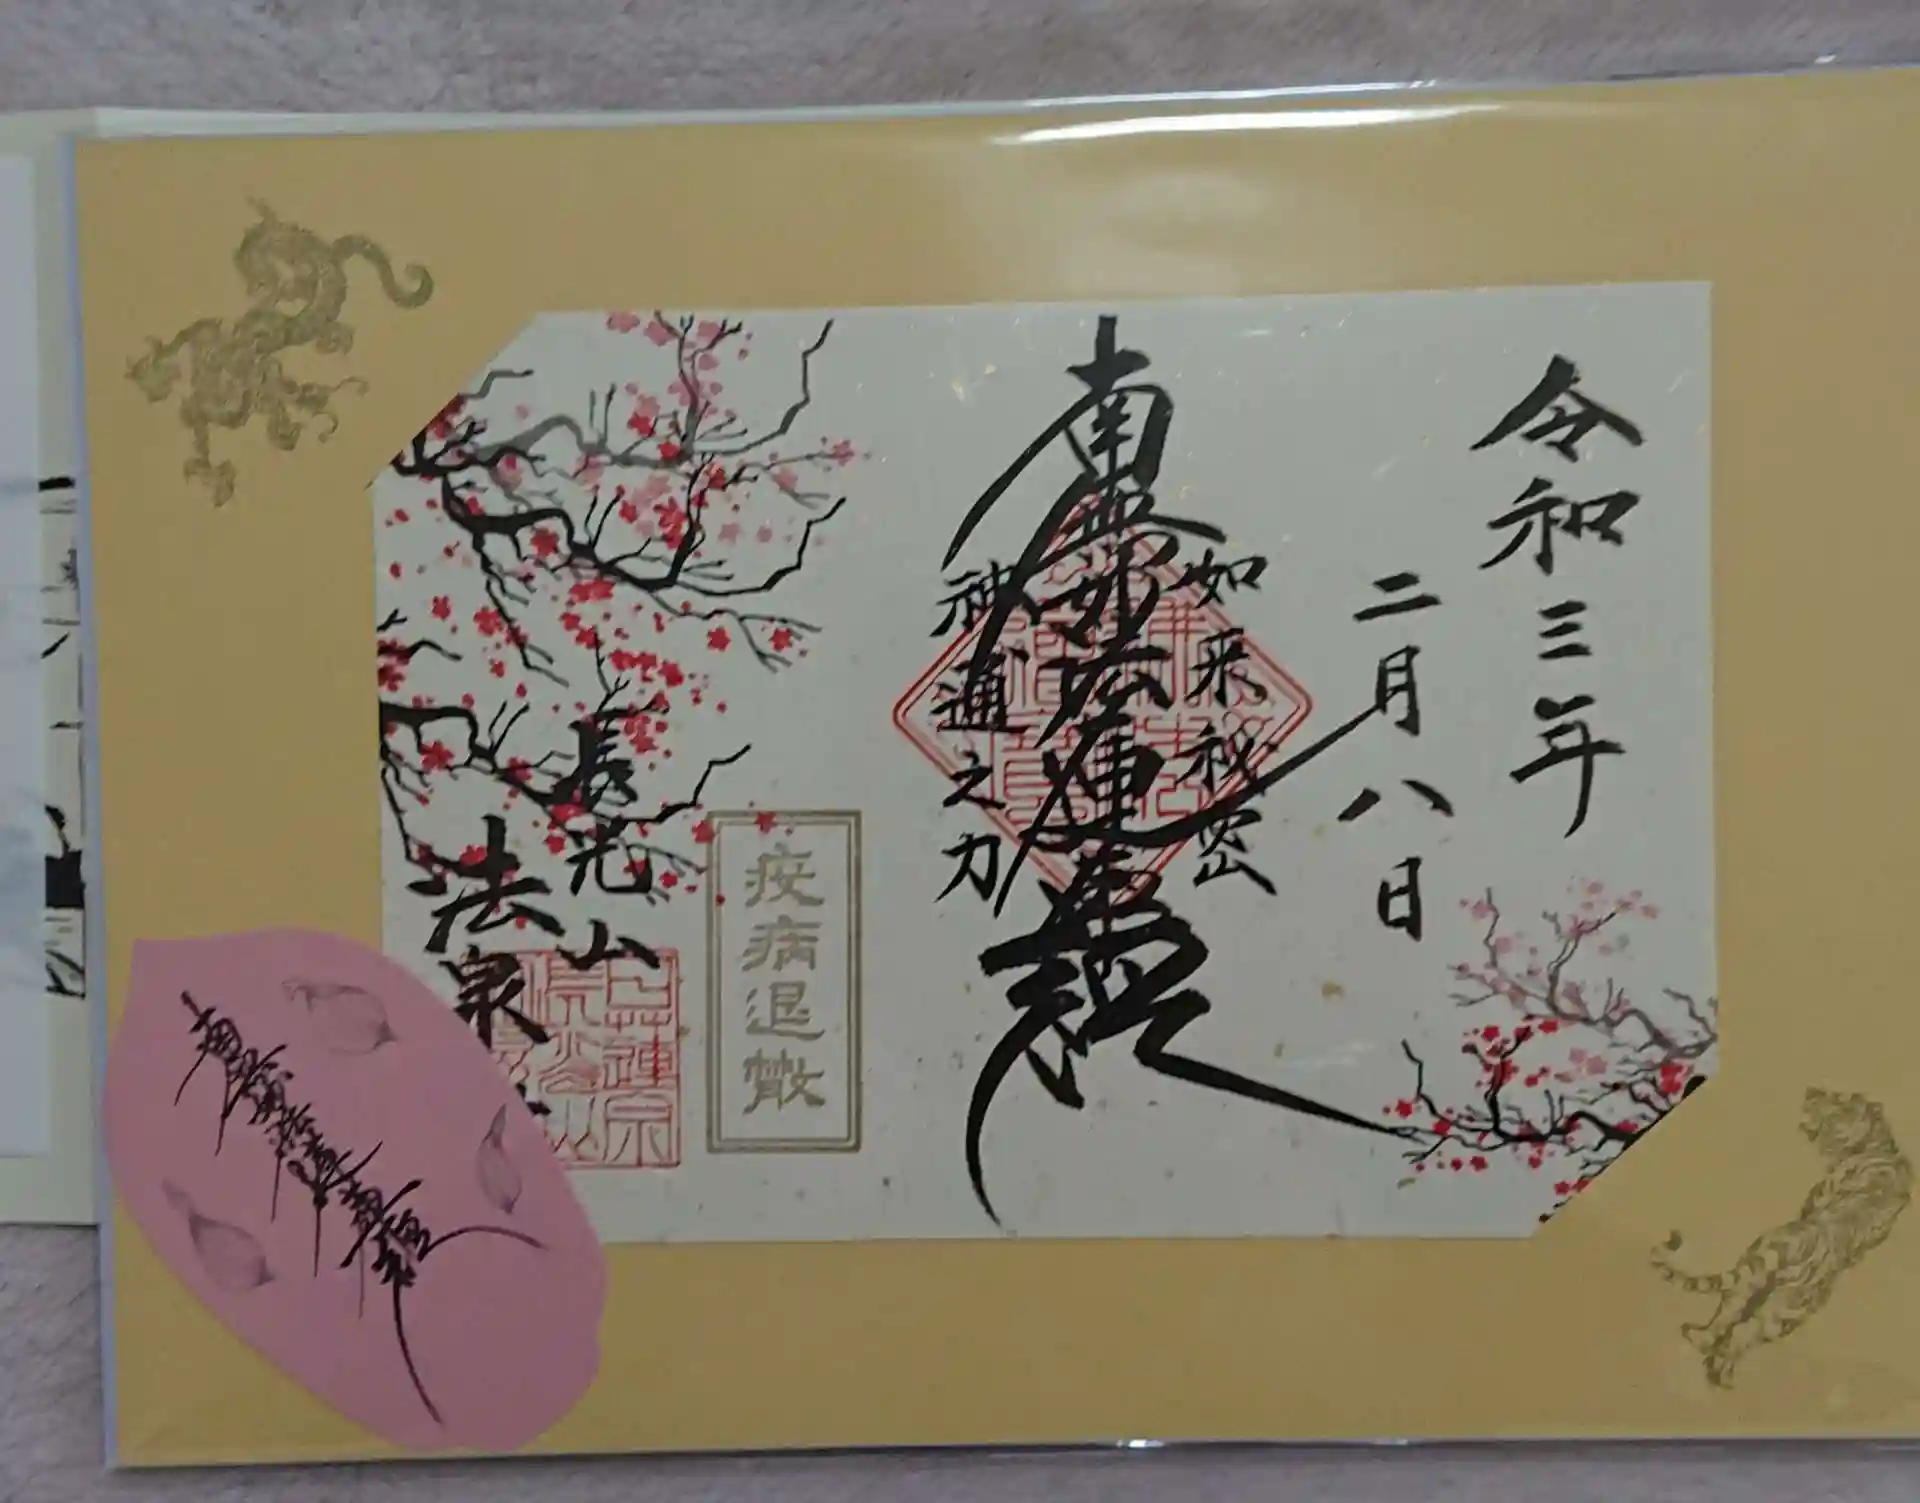 令和三年
二月八日
如来秘密
南無妙法蓮華経
神通之力
疫病退散
長光山
法泉
南無妙法蓮華経